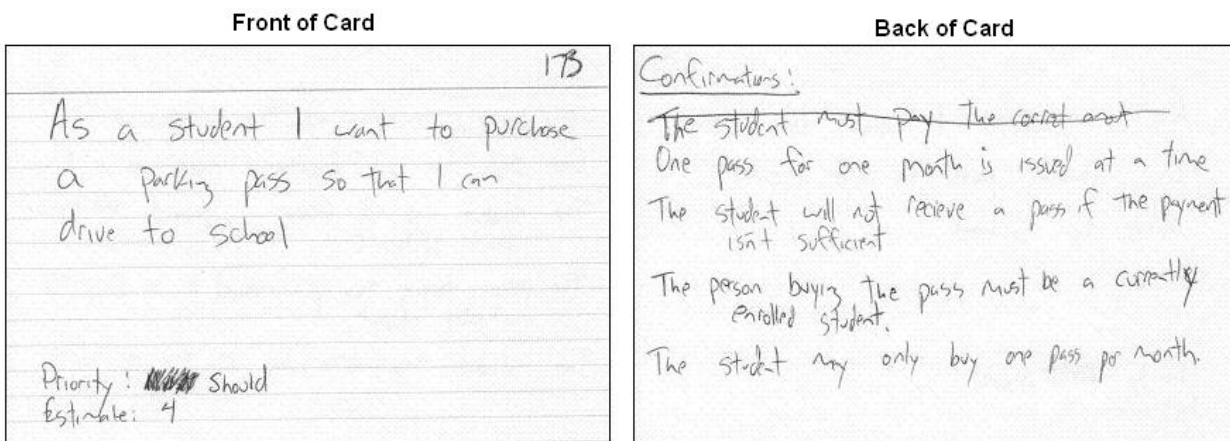 Front of Card
173
As a student I want to purchase
a parking pass so that I can
drive to school
Priority: Should
Estimate: 4
Back of Card
Confirmations:
The student must pay the corret amt
One pass for one month is issued at a time
The student will not recieve a pass if the payment
isn't sufficient
The person buying the pass must be a currently
enrolled student.
The student may only buy one pass per month.